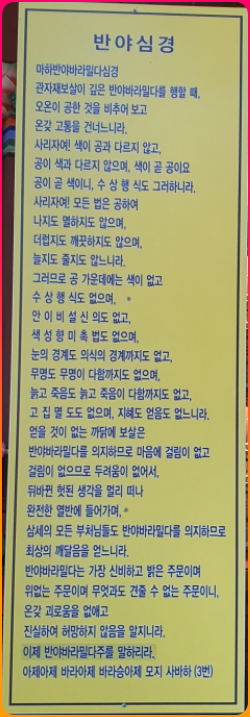 반야심경
마하반야바라밀다심경
관자재보살이 깊은 반야바라밀다를 행할 때,
오온이 공한 것을 비추어 보고
온갖 고통을 건너느니라.
사리자여! 색이 공과 다르지 않고,
공이 색과 다르지 않으며, 색이 곧 공이요
공이 곧 색이니, 수 상 행 식도 그러하니라.
사리자여! 모든 법은 공하여
나지도 멸하지도 않으며,
더럽지도 깨끗하지도 않으며,
늘지도 줄지도 않느니라.
그러므로 공 가운데에는 색이 없고
수 상 행 식도 없으며,
안 이 비 설 신 의도 없고,
색 성 향 미 촉 법도 없으며,
눈의 경계도 의식의 경계까지도 없고,
무명도 무명이 다함까지도 없으며,
늙고 죽음도 늙고 죽음이 다함까지도 없고,
고 집 멸 도도 없으며, 지혜도 얻음도 없느니라.
얻을 것이 없는 까닭에 보살은
반야바라밀다를 의지하므로 마음에 걸림이 없고
걸림이 없으므로 두려움이 없어서,
뒤바뀐 헛된 생각을 멀리 떠나
완전한 열반에 들어가며,
삼세의 모든 부처님들도 반야바라밀다를 의지하므로
최상의 깨달음을 얻느니라.
반야바라밀다는 가장 신비하고 밝은 주문이며
위없는 주문이며 무엇과도 견줄 수 없는 주문이니,
온갖 괴로움을 없애고
진실하여 허망하지 않음을 알지니라.
이제 반야바라밀다주를 말하리라.
아제아제 바라아제 바라승아제 모지 사바하 (3번)